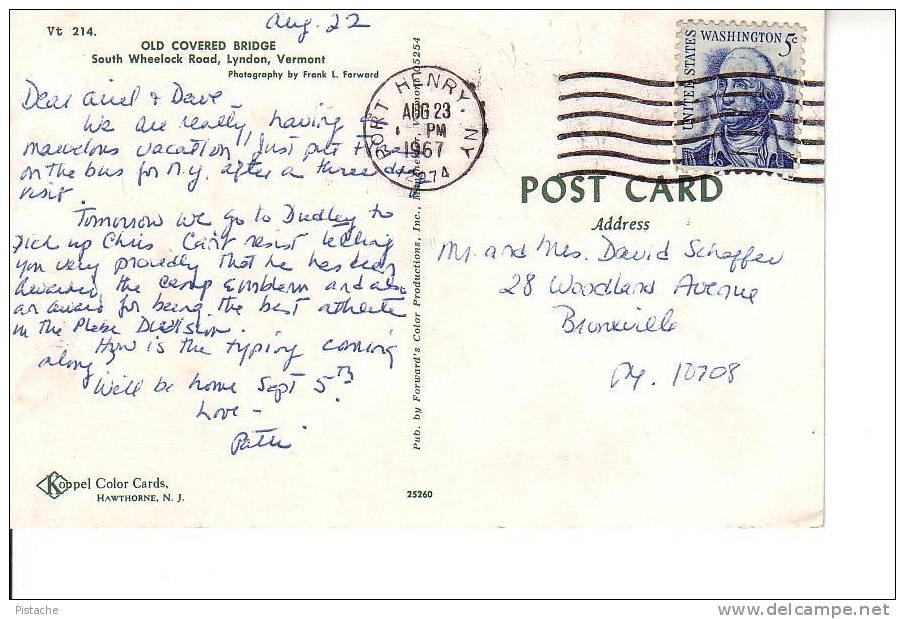 Vt 214.
Aug. 22
OLD COVERED BRIDGE
South Wheelock Road, Lyndon, Vermont
Photography by Frank L. Forward
Dear & Dave -
We are really having a
marvelous vacation! Just put
on the bus for N.Y. after a three day
visit.
Tomorrow we go to Dudley to
pick up Chris. Can't resist telling
you very proudly that he has been
awarded the camp Emblem and also
an award for being the best athlete
in the Plebe Division.
How is the typing coming
along?
We'll be home Sept 5th.
Love -
Patti
Koppel Color Cards,
HAWTHORNE, N. J.
25260
Pub. by Forward's Color Productions, Inc., Manchester, Vermont 05254
PORT HENRY, N.Y.
AUG 23
PM
1967
12974
UNITED STATES
WASHINGTON 5c
POST CARD
Address
Mr. and Mrs. David Schaffer
28 Woodland Avenue
Bronxville
N.Y. 10708
Pistache
©delcampe.net